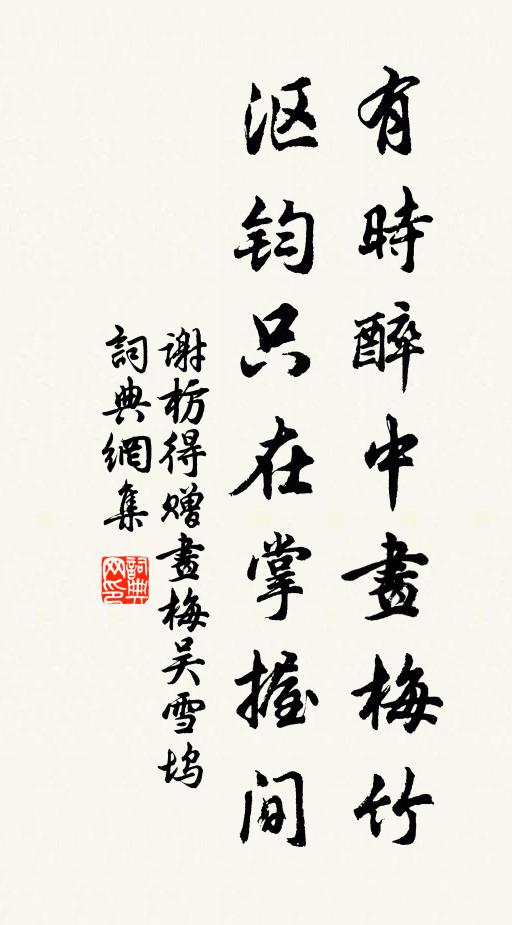 有時醉中畫梅竹
沤钧只在掌握间
谢枋得赠畫梅吴雪坞
詞典網集
詞典
网印